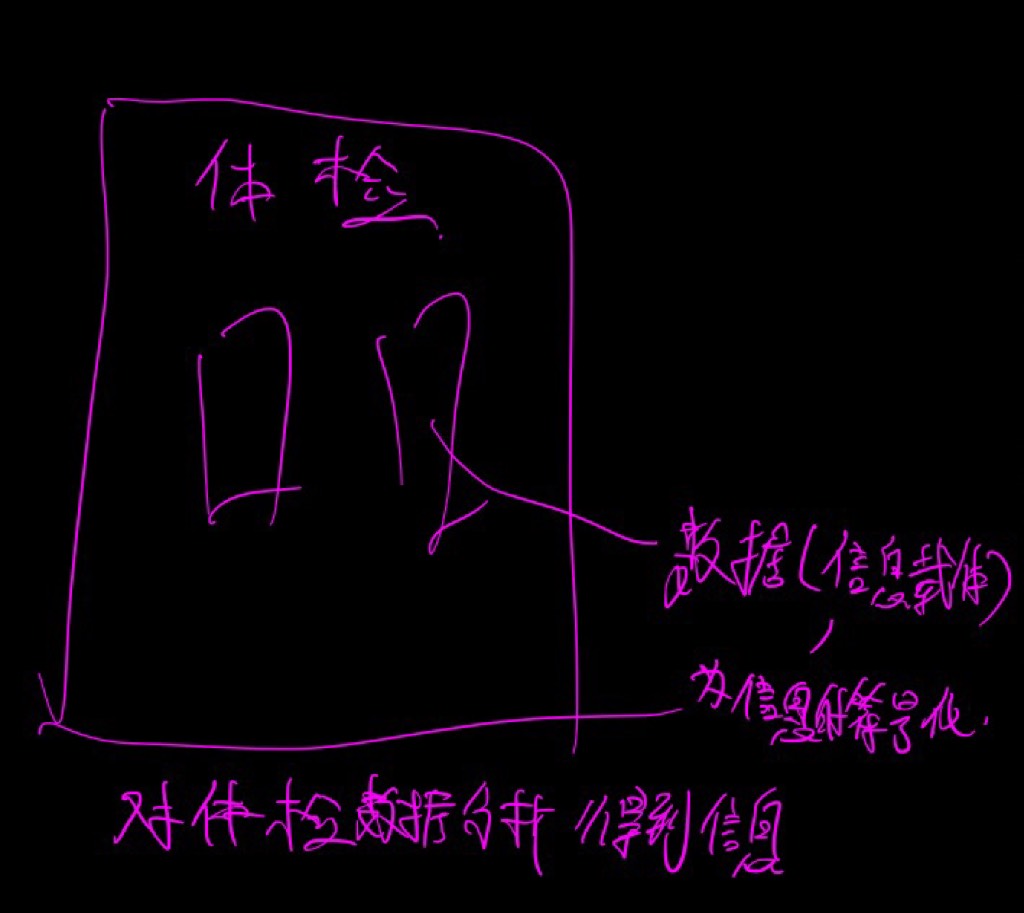 体检
数据(信息载体)
为信息的符号化.
对体检数据分析 得到信息